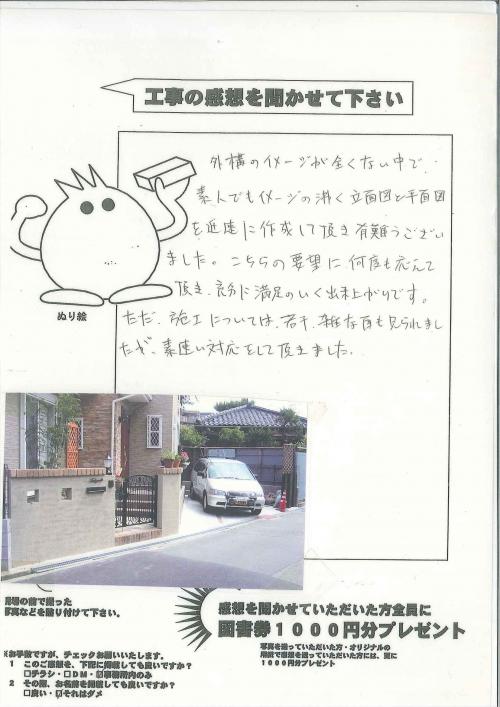 工事の感想を聞かせて下さい
外構のイメージが全くない中で、
素人でもイメージの沸く立面図と平面図
を迅速に作成して頂き有難うござい
ました。こちらの要望に何度も応えて
頂き、非常に満足のいく出来上がりです。
ただ、施工については、若干、雑な面も見られまし
たが、素速い対応をして頂きました。
ぬり絵
現場の前で撮った
写真などを貼り付けて下さい。
感想を聞かせていただいた方全員に
図書券1000円分プレゼント
写真を送っていただいた方・オリジナルの
用紙で感想を送っていただいた方には、更に
1000円分プレゼント
※お手数ですが、チェックお願いいたします。
1 このご感想を、下記に掲載しても良いですか?
□チラシ・□DM・☑事務所内のみ
2 その際、お名前を掲載しても良いですか?
□良い・☑それはダメ